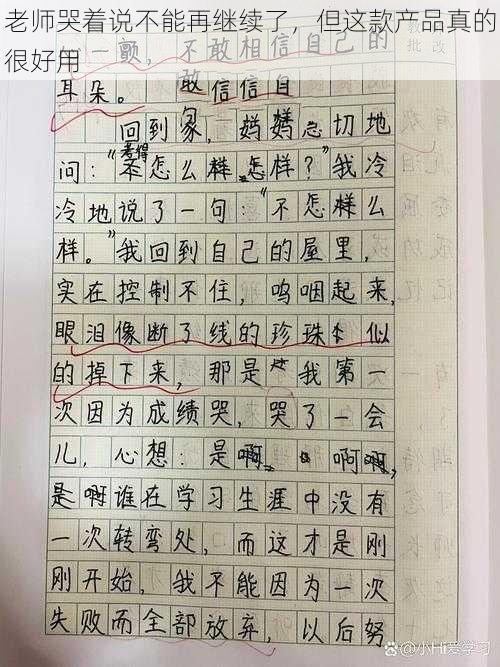 老师哭着说不能再继续了，但这款产品真的
很好用
一颤，不敢相信自己的
敢信信自
耳朵。
回到家，妈妈急切地
考得
问：“怎么样，怎样？”我冷
冷地说了一句：“不怎么
样。”我回到自己的屋里，
实在控制不住，呜咽起来，
眼泪像断了线的珍珠似
的掉下来，那是我第一
次因为成绩哭，哭了一会
儿，心想：是啊，啊啊，
是啊谁在学习生涯中没有
一次转弯处，而这才是刚
刚开始，我不能因为一次
失败而全部放弃，以后努
批改
小Hi爱学习